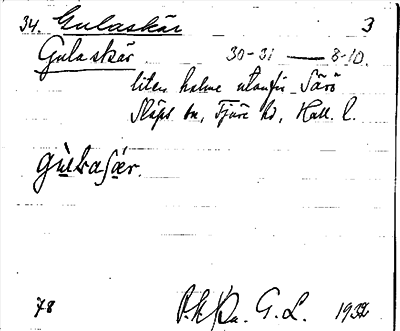 34. Gulaskär 3
Gulaskär 30-31 — 8-10.
liten holme utanför Särö
Släps sn, Fjäre hd, Hall. l.
78 G. L. 1932